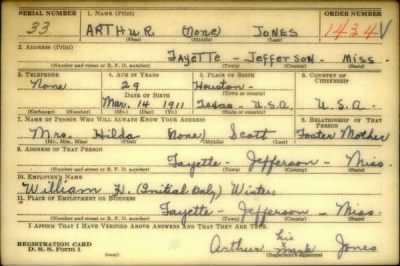 SERIAL NUMBER 1. NAME (Print) ORDER NUMBER
33 ARTHUR (None) JONES 1434 V
(First) (Middle) (Last)
2. ADDRESS (Print)
Fayette - Jefferson - Miss.
(Number and street or R. F. D. number) (Town) (County) (State)
3. TELEPHONE 4. AGE IN YEARS 5. PLACE OF BIRTH 6. COUNTRY OF CITIZENSHIP
None 29 Houston -
DATE OF BIRTH (Town or county)
Mar. 14 1911 Texas - U.S.A. U.S.A.
(Exchange) (Number) (Mo.) (Day) (Yr.) (State or country)
7. NAME OF PERSON WHO WILL ALWAYS KNOW YOUR ADDRESS 8. RELATIONSHIP OF THAT PERSON
Mrs. Hilda (None) Scott Foster Mother
(Mr., Mrs., Miss) (First) (Middle) (Last)
9. ADDRESS OF THAT PERSON
Fayette - Jefferson - Miss.
(Number and street or R. F. D. number) (Town) (County) (State)
10. EMPLOYER'S NAME
William H. (Initial Only) Winters
11. PLACE OF EMPLOYMENT OR BUSINESS
Fayette - Jefferson - Miss.
(Number and street or R. F. D. number) (Town) (County) (State)
I AFFIRM THAT I HAVE VERIFIED ABOVE ANSWERS AND THAT THEY ARE TRUE.
REGISTRATION CARD his
D. S. S. Form 1 Arthur mark Jones
(Registrant's signature)